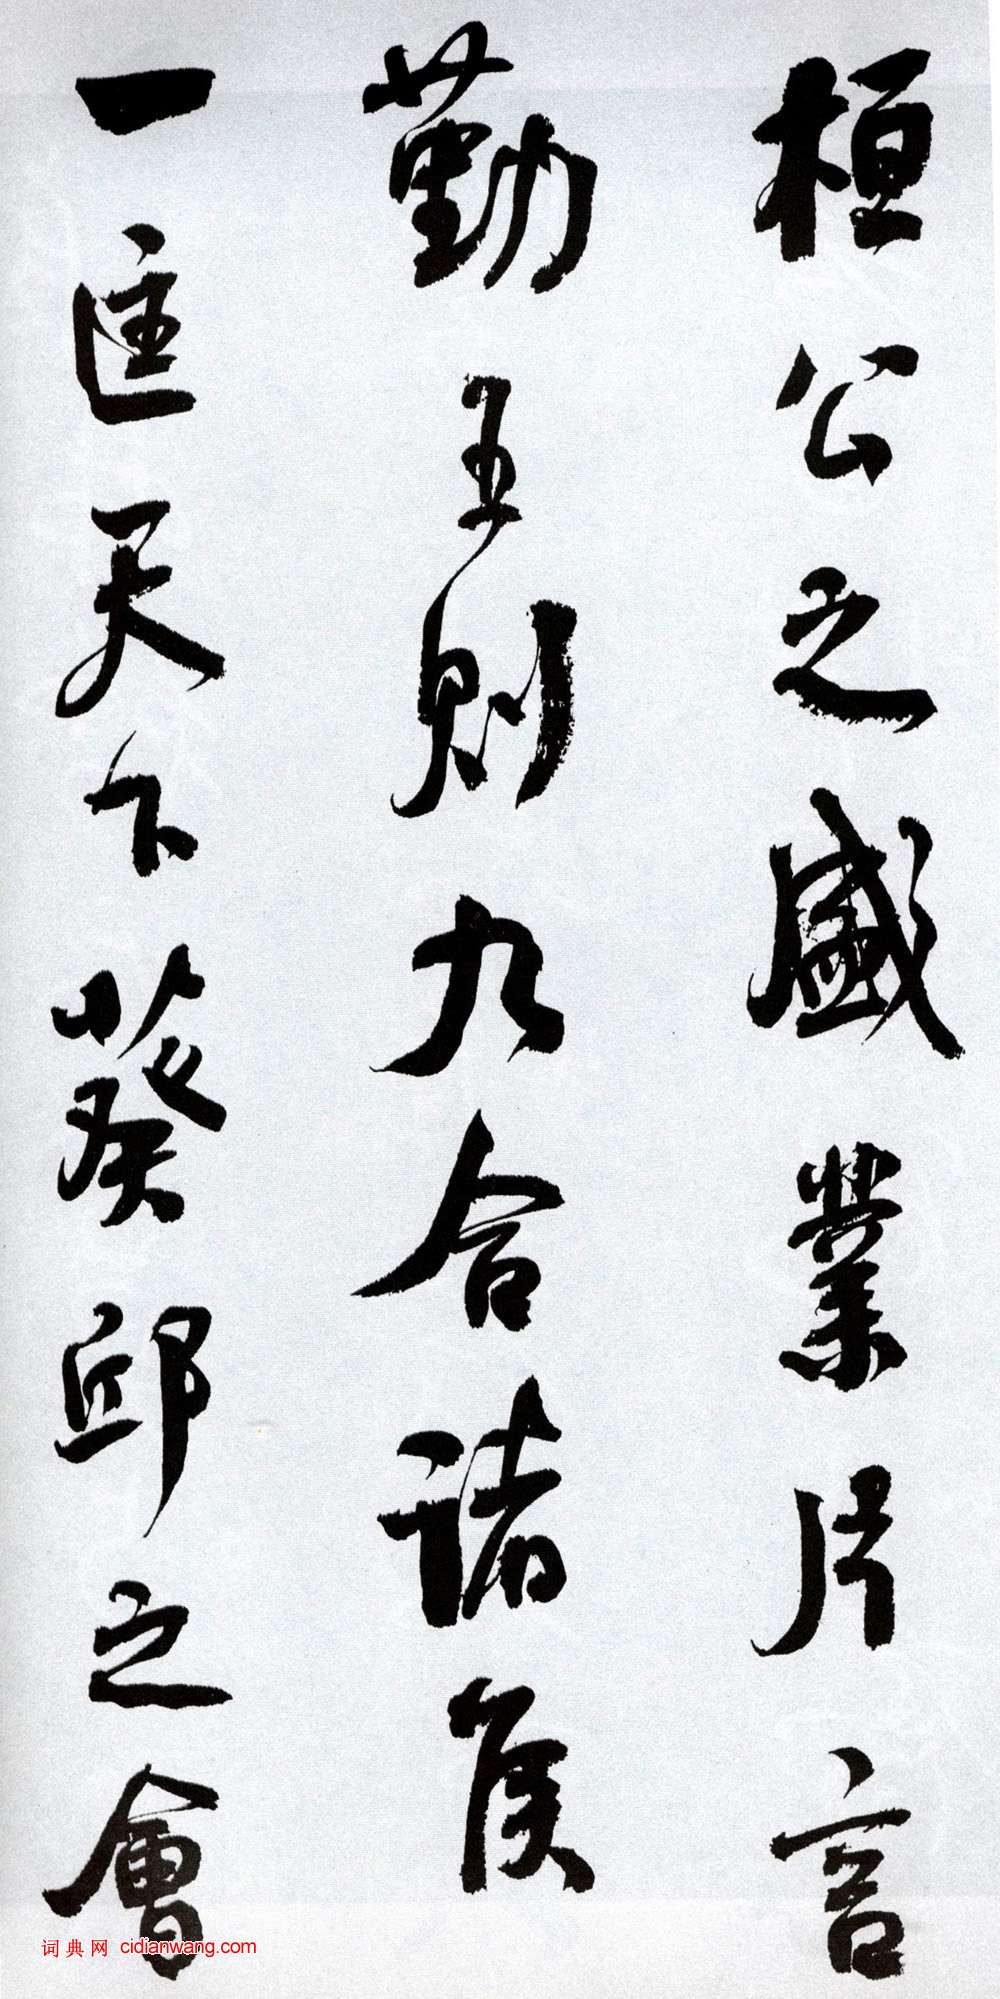 桓公之盛業片言
勤王則九合諸侯
一匡天下葵邱之會
词典网 cidianwang.com